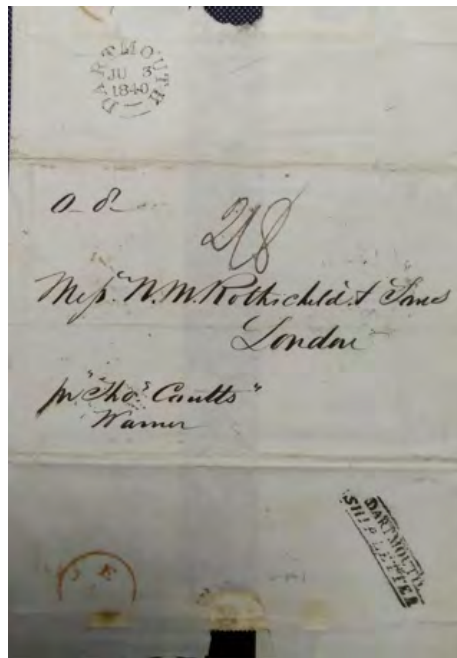 DARTMOUTH
JU 3
1840
2/8
Messrs. N. M. Rothschild & Sons
London
pr "Thos. Coutts"
Warner
DARTMOUTH
SHIP LETTER